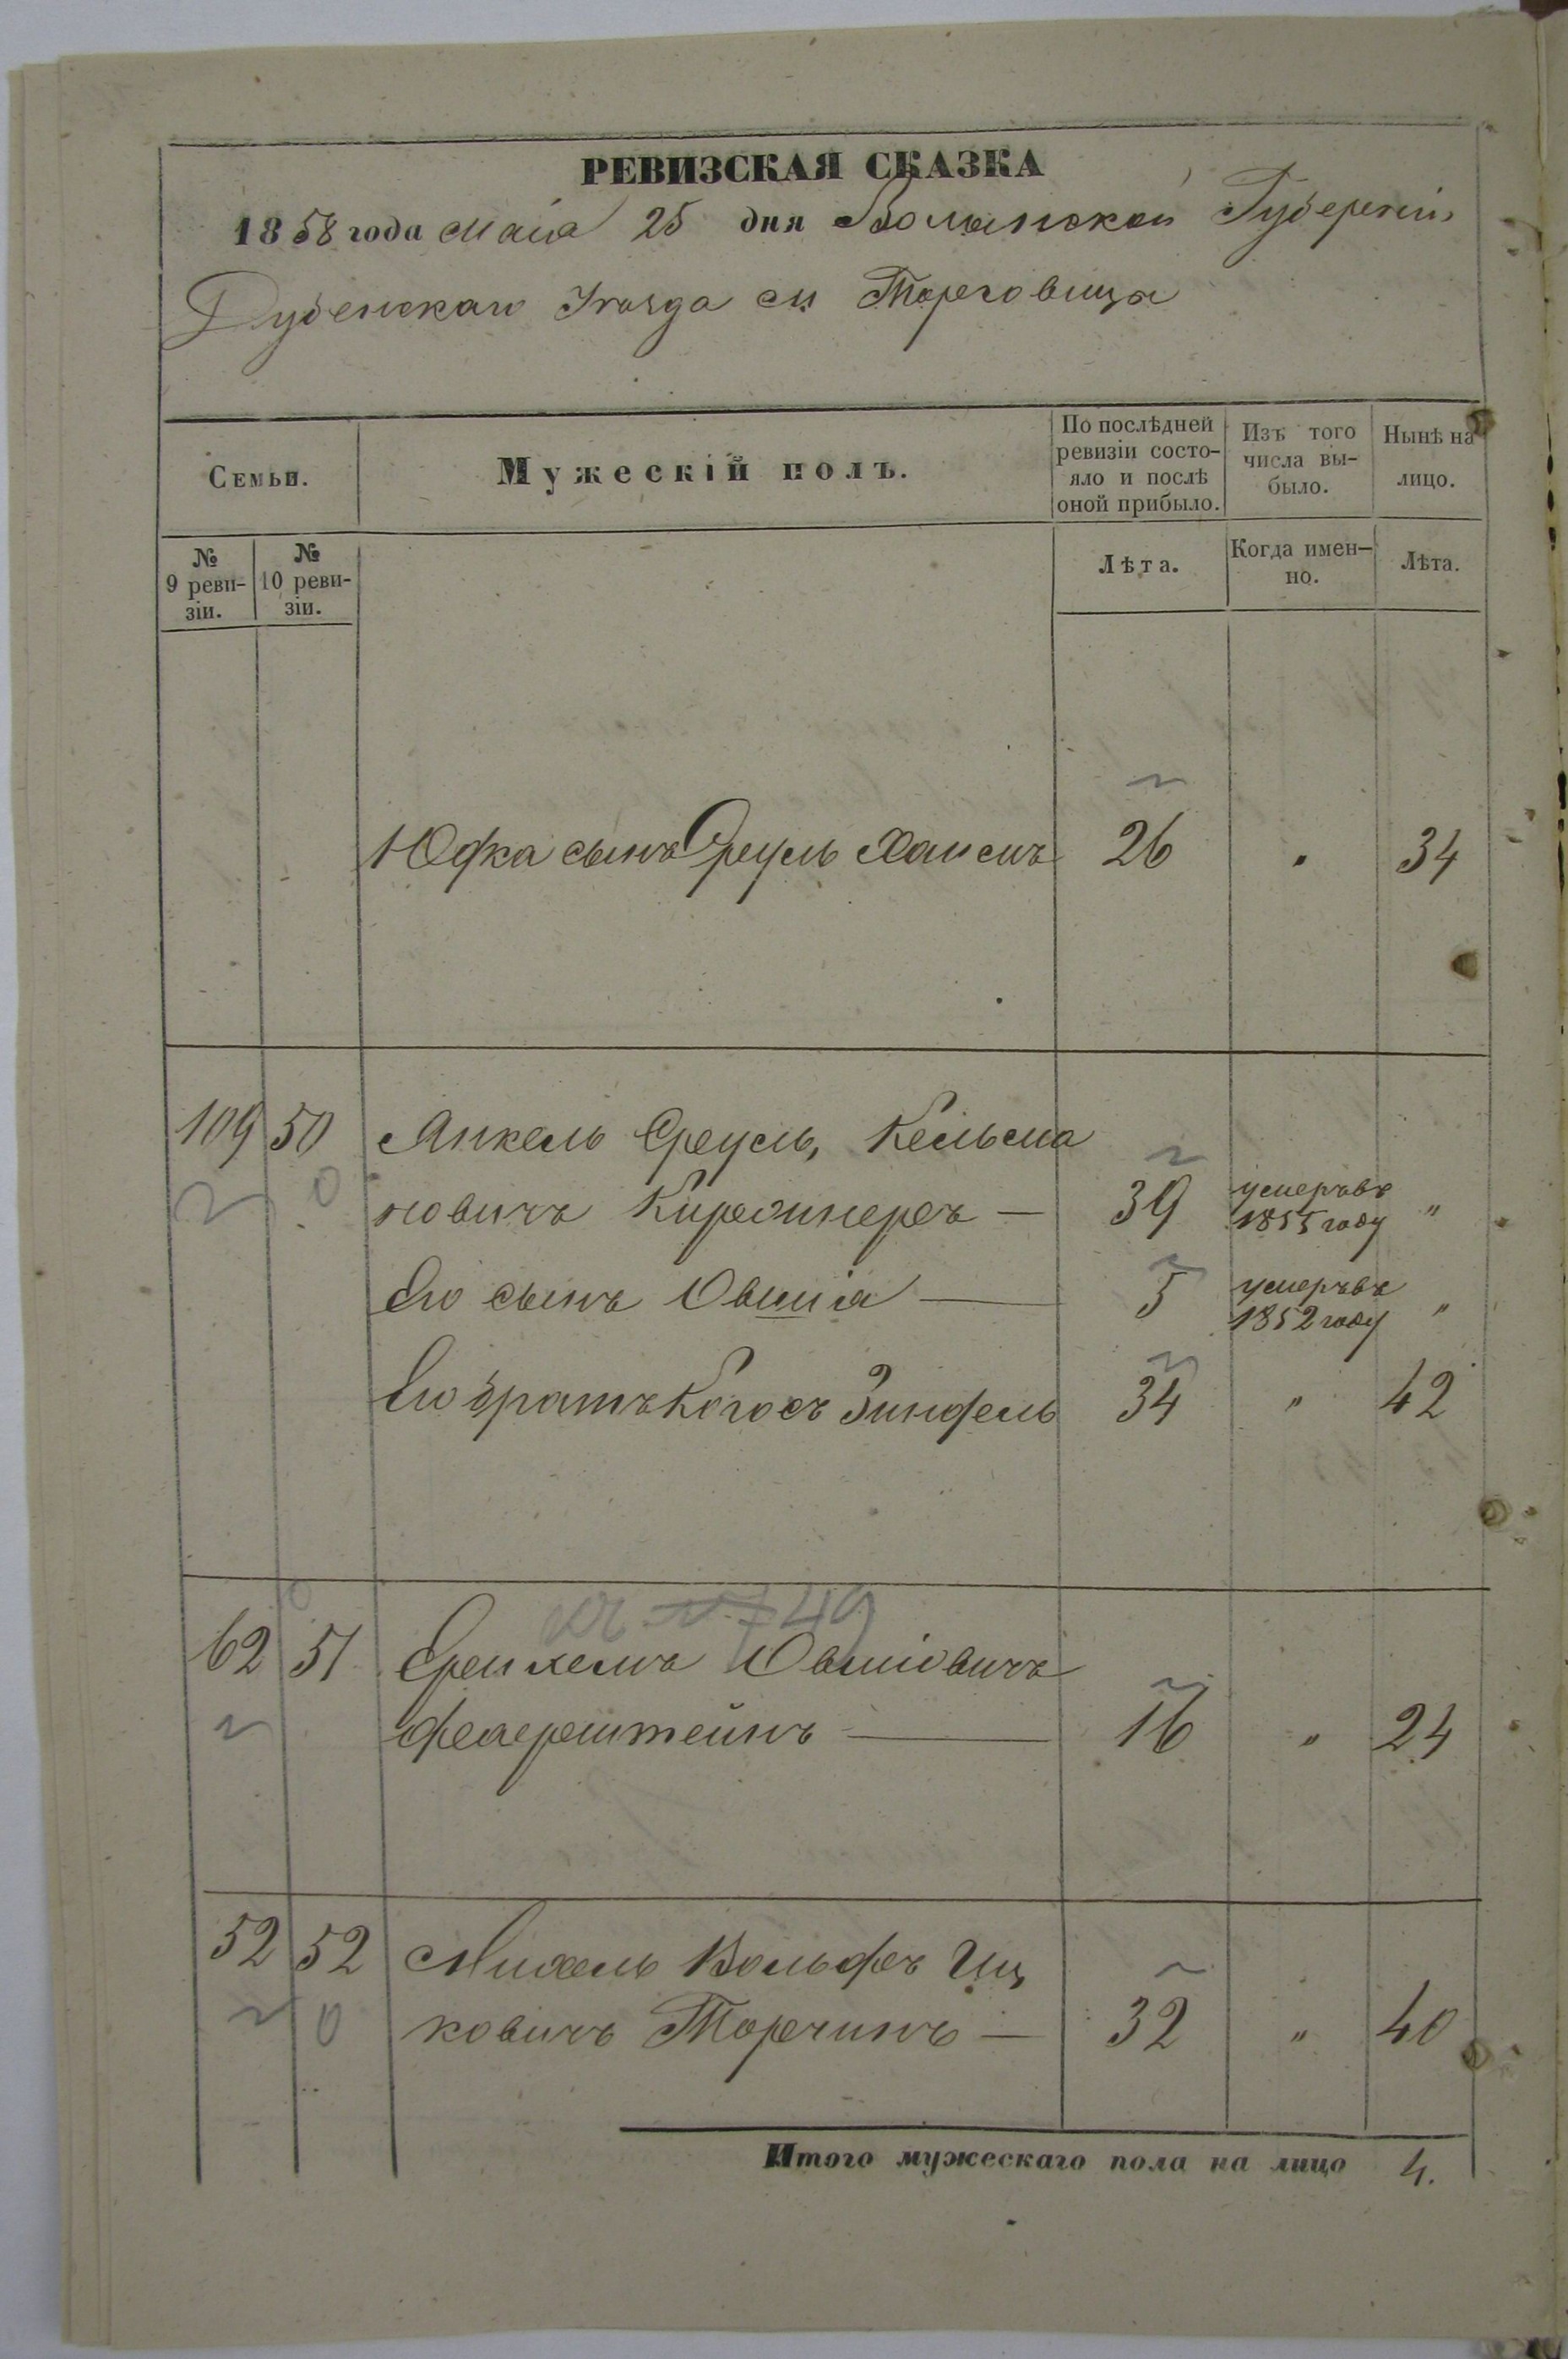 РЕВИЗСКАЯ СКАЗКА
1858 года Маія 25 дня Волынской Губерніи
Дубенскаго Уѣзда м Торговица
Семьи.
Мужескій полъ.
По послѣдней ревизіи состо-
яло и послѣ оной прибыло.
Изъ того числа вы-
было.
Нынѣ на лицо.
№ 9 реви-
зіи.
№ 10 реви-
зіи.
Лѣта.
Когда имен-
но.
Лѣта.
Юфка сынъ Сруль Хаимъ 26 . 34
109 50 Янкель Сруль, Кельма
новичъ Киржнеръ — 39 умеръ въ 1855 году "
Его сынъ Овшія — 5 умеръ въ 1852 году "
Его братъ Зинфель 34 " 42
49
62 51 Овшіовичъ
Феерштейнъ — 16 " 24
52 52 Михель Вольфъ Иц
ковичъ Торчинъ — 32 " 40
Итого мужескаго пола на лицо 4.